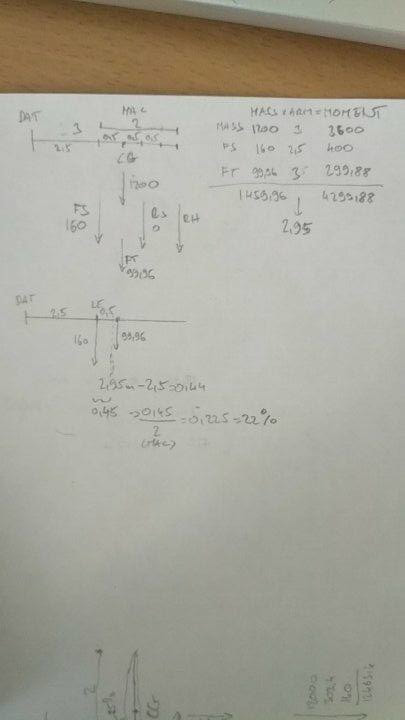 DAT
3
MAC
2
2,5
0,5 0,5 0,5
CG
1200
FS
160
RS
0
RH
FT
99,96
MASS x ARM = MOMENT
MASS 1200 3 3600
FS 160 2,5 400
FT 99,96 3 299,88
1459,96 4299,88
2,95
DAT
2,5
LE
0,5
160
99,96
2,95m - 2,5 = 0,44
0,45 => 0,45 = 0,225 = 22%
2
(MAC)
2
25%
CG
12000
302,4
160
12463,4